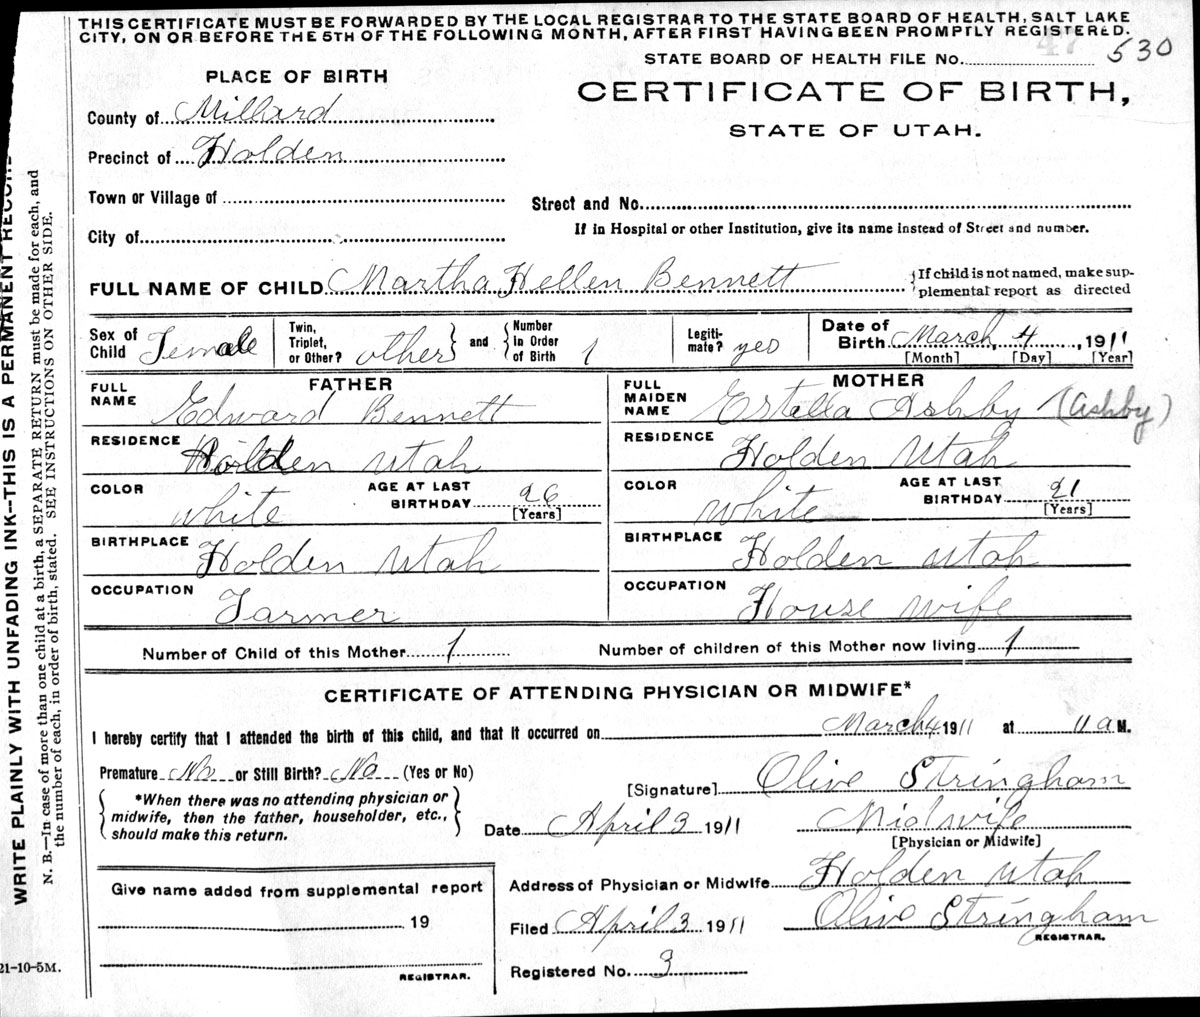 THIS CERTIFICATE MUST BE FORWARDED BY THE LOCAL REGISTRAR TO THE STATE BOARD OF HEALTH, SALT LAKE
CITY, ON OR BEFORE THE 5TH OF THE FOLLOWING MONTH, AFTER FIRST HAVING BEEN PROMPTLY REGISTERED.
47
STATE BOARD OF HEALTH FILE No. 530
PLACE OF BIRTH
CERTIFICATE OF BIRTH,
STATE OF UTAH.
County of Millard
Precinct of Holden
Town or Village of
Street and No.
City of
If in Hospital or other Institution, give its name instead of Street and number.
FULL NAME OF CHILD Martha Hellen Bennett
{If child is not named, make sup-
plemental report as directed
Sex of Child Female
Twin, Triplet, or Other? other } and { Number In Order of Birth 1
Legiti-mate? yes
Date of Birth March 4, 1911
[Month] [Day] [Year]
FATHER
FULL NAME Edward Bennett
RESIDENCE Holden Utah
COLOR white AGE AT LAST BIRTHDAY 26
[Years]
BIRTHPLACE Holden Utah
OCCUPATION Farmer
MOTHER
FULL MAIDEN NAME Estella Ashby (Ashby)
RESIDENCE Holden Utah
COLOR white AGE AT LAST BIRTHDAY 21
[Years]
BIRTHPLACE Holden Utah
OCCUPATION House wife
Number of Child of this Mother 1 Number of children of this Mother now living 1
CERTIFICATE OF ATTENDING PHYSICIAN OR MIDWIFE*
I hereby certify that I attended the birth of this child, and that it occurred on March 4 1911 at 11 a M.
Premature No or Still Birth? No (Yes or No)
{ *When there was no attending physician or
midwife, then the father, householder, etc.,
should make this return. }
[Signature] Olive Stringham
Date April 3 1911 Midwife
[Physician or Midwife]
Address of Physician or Midwife Holden Utah
Filed April 3 1911 Olive Stringham
REGISTRAR.
Registered No. 3
Give name added from supplemental report
19
REGISTRAR.
21-10-5M.
WRITE PLAINLY WITH UNFADING INK--THIS IS A PERMANENT RECORD
N. B.—In case of more than one child at a birth, a SEPARATE RETURN must be made for each, and
the number of each, in order of birth, stated. SEE INSTRUCTIONS ON OTHER SIDE.